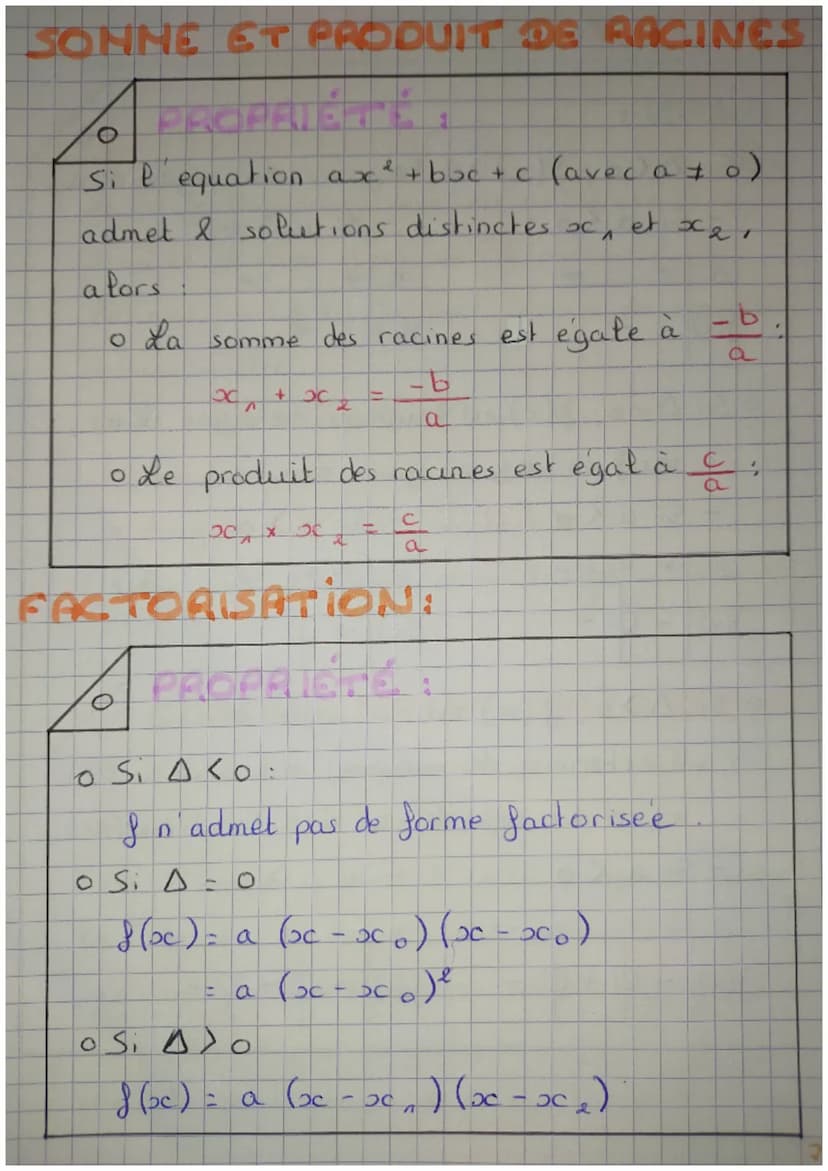 SOMME ET PRODUIT DE RACINES
PROPRIÉTÉ :
Si l'equation ax² + bx + c (avec a ≠ 0)
admet 2 solutions distinctes x₁ et x₂,
alors :
o La somme des racines est égale à -b/a :
x₁ + x₂ = -b/a
o Le produit des racines est égal à c/a :
x₁ × x₂ = c/a
FACTORISATION :
PROPRIÉTÉ :
o Si Δ < 0 :
f n'admet pas de forme factorisée.
o Si Δ = 0
f(x) = a (x - x₀) (x - x₀)
= a (x - x₀)²
o Si Δ > 0
f(x) = a (x - x₁) (x - x₂)